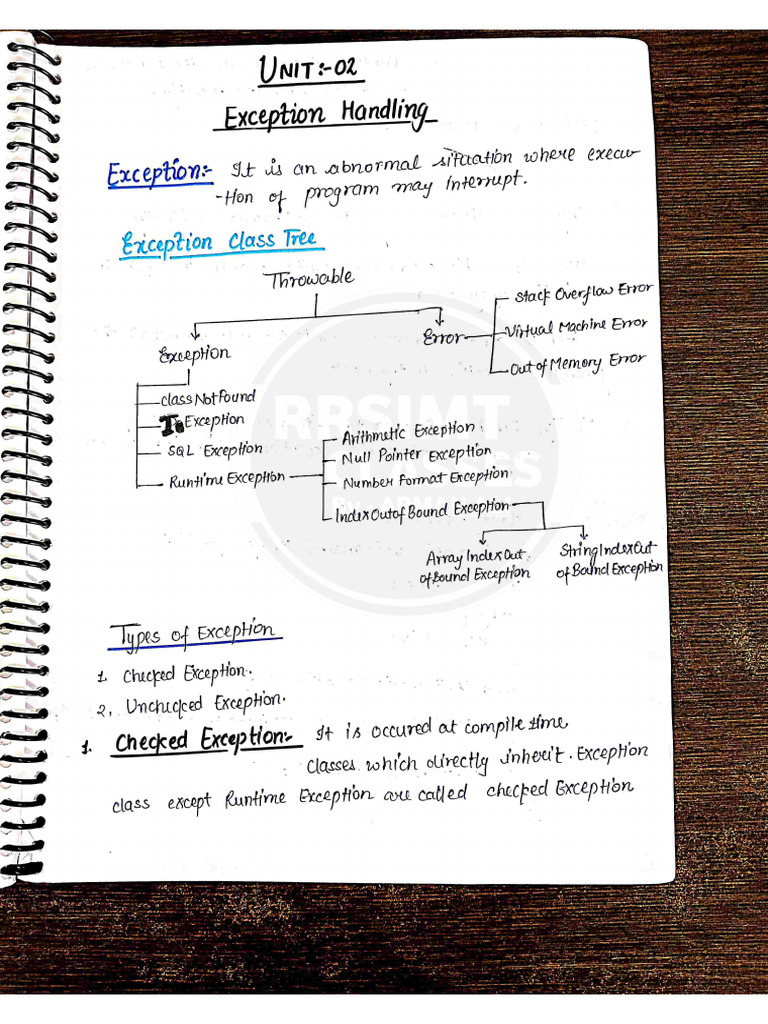 UNIT:-02
Exception Handling
Exception:- It is an abnormal situation where execu-
-tion of program may interrupt.
Exception Class Tree
Throwable
Exception
Error
Stack Overflow Error
Virtual Machine Error
Out of Memory Error
class Not Found
Exception
SQL Exception
Runtime Exception
Arithmetic Exception
Null Pointer Exception
Number Format Exception
Index Out of Bound Exception
Array Index Out
of Bound Exception
String Index Out
of Bound Exception
RRSIMT
CLASSES
Types of Exception
1. Checked Exception.
2, Unchecked Exception.
1. Checked Exception:- It is occured at compile time
classes which directly inherit. Exception
class except Runtime Exception are called checked Exception